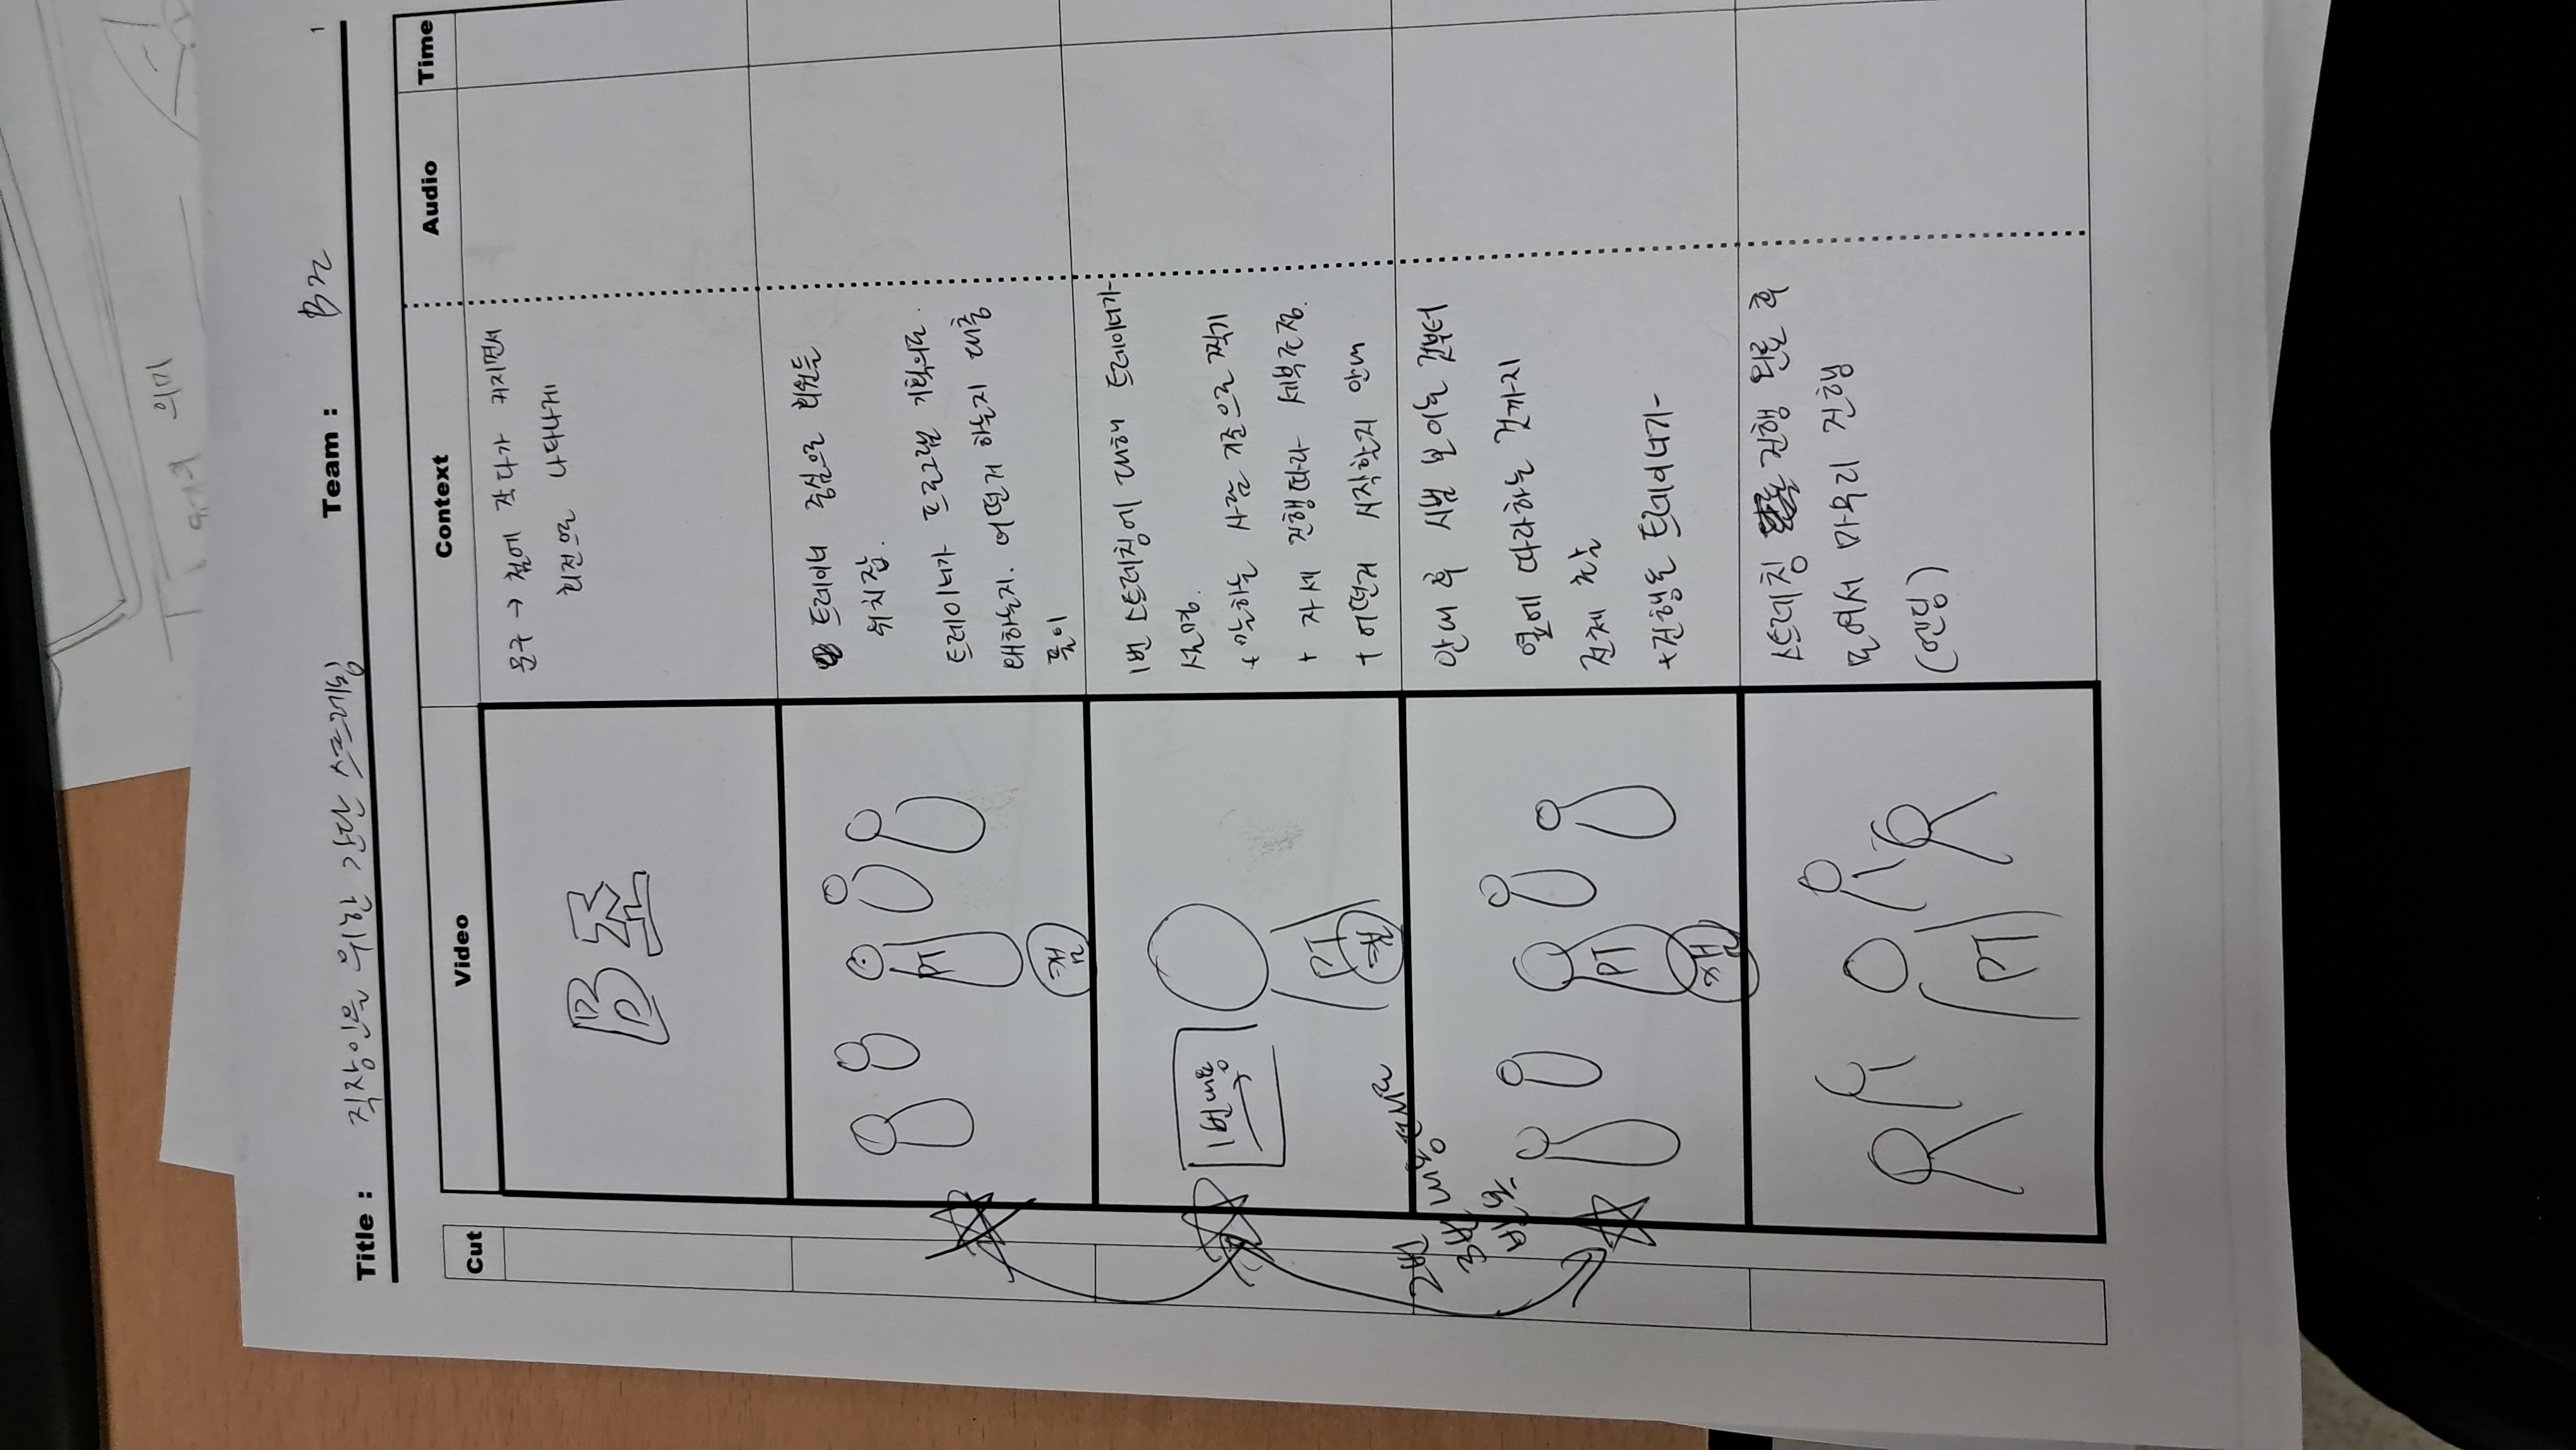 의미
Title : 직장인을 위한 간단 스트레칭
Team : B조
1
Cut
Video
Context
Audio
Time
B조
문구 → 첨에 작다가 커지면서
회전으로 나타나게
PT
캠
트레이너 중심으로 회원들
위치잡.
트레이너가 프로그램 기획의도.
왜하는지. 어떤거 하는지 대충
풀이
1번내용
PT
캠
1번 스트레칭에 대해 트레이너가
설명.
+ 말하는 사람 기준으로 찍기
+ 자세 진행따라 세부조정.
+ 어떤거 시작할지 안내
2번
3번 내용
반복
PT
캠
안내 후 시범 보이는 것부터
옆에 따라하는 것까지
전체 촬
+진행도 트레이너가
PT
스트레칭 진행 완료 후
모여서 마무리 진행
(엔딩)